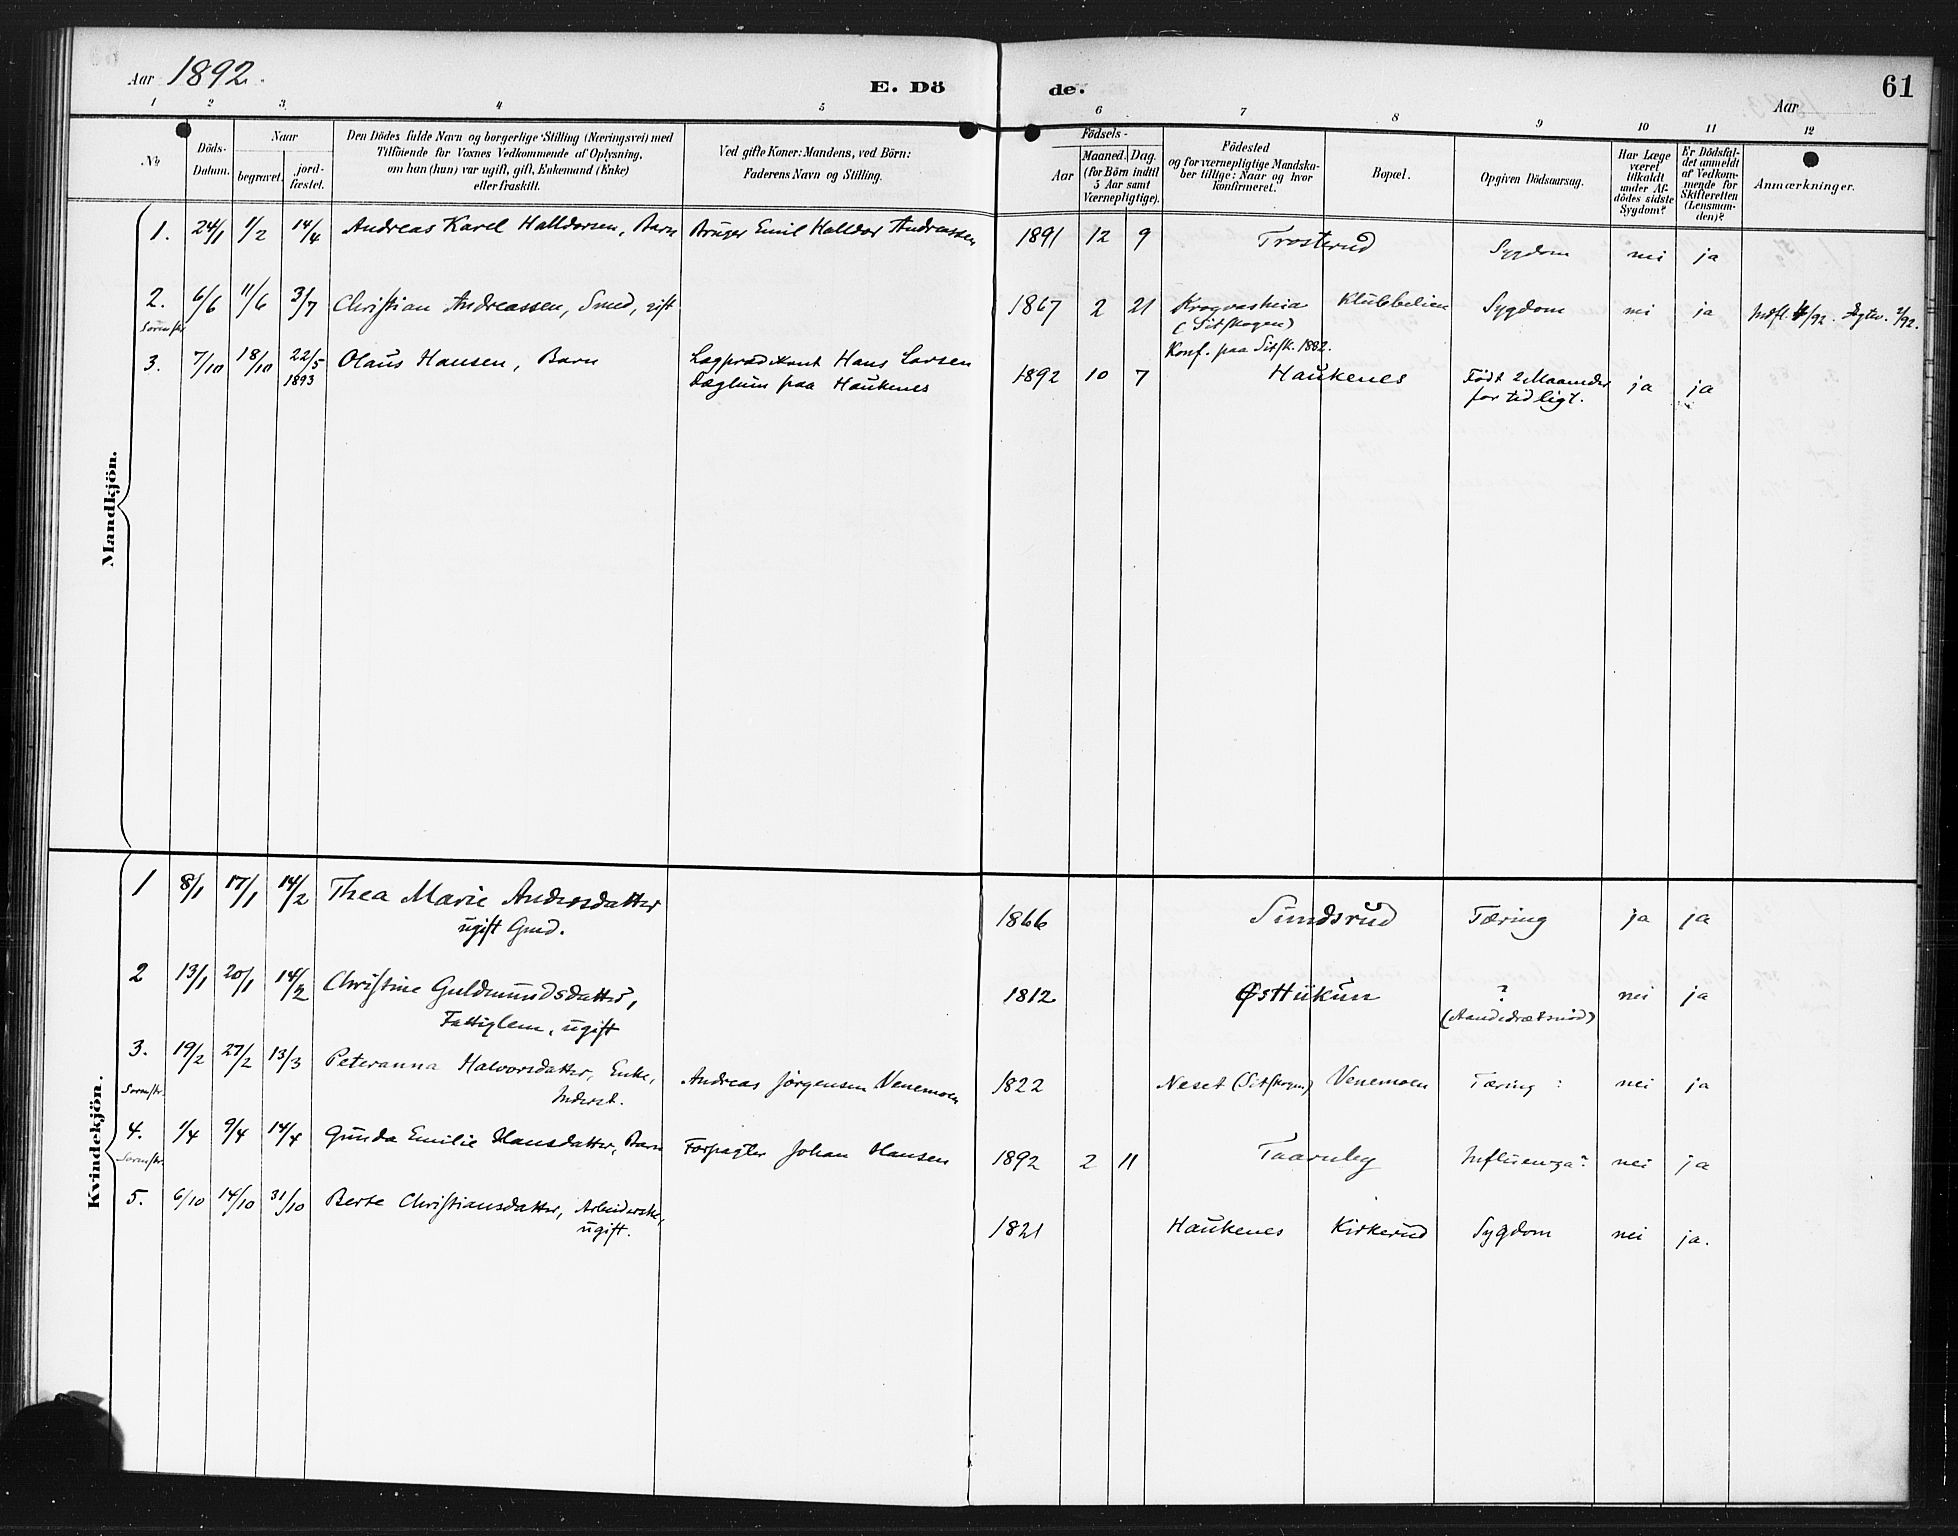 Aar 1892.
E. Döde.
Aar
61
1 2 3 4 5 6 7 8 9 10 11 12
No
Döds-Datum.
Naar
begravet.
jord-fæstet.
Den Dödes fulde Navn og borgerlige Stilling (Næringsvei) med
Tilföiende for Voxnes Vedkommende af Oplysning,
om han (hun) var ugift, gift, Enkemand (Enke)
eller fraskilt.
Ved gifte Koner: Mandens, ved Börn:
Faderens Navn og Stilling.
Födsels-
Aar
Maaned. Dag.
(for Börn indtil
5 Aar samt
Værnepligtige).
Födested
og for værnepligtige Mandska-
ber tillige: Naar og hvor
konfirmeret.
Bopæl.
Opgiven Dödsaarsag.
Har Læge
været
tilkaldt
under Af-
dödes sidste
Sygdom?
Er Dödsfal-
det anmeldt
af Vedkom-
mende for
Skifteretten
(Lensman-
den)?
Anmærkninger.
Mandkjön.
1. 24/1 1/2 14/4 Andreas Karel Halldorsen, Barn Bruger Emil Halldor Andreassen 1891 12 9 Trosterud Sygdom nei ja
2. 6/6 11/6 3/7 Christian Andreassen, Smed, gift 1867 2 21 Krogvasheia Klubbelien Sygdom nei ja
(Sitskogen)
Konf. paa Sitsk. 1882.
3. 7/10 18/10 22/5 Olaus Hansen, Barn Lagprædikant Hans Larsen 1892 10 7 Haukenes Født 2 Maaneder ja ja
1893 Dæglum paa Haukenes for tidligt.
Kvindekjön.
1 8/1 17/1 14/2 Thea Marie Andersdatter 1866 Sundsrud Tæring ja ja
ugift Gmd.
2 13/1 20/1 14/2 Christine Guldmundsdatter, 1812 Østhukun ? nei ja
Fattiglem, ugift (Aandedrætsnød)
3. 19/2 27/2 13/3 Peteranna Halvorsdatter, Enke, Andreas Jørgensen Venemoen 1822 Neset (Sitskogen) Venemoen Tæring nei ja
Inderst.
4. 1/4 9/4 14/4 Gunda Emilie Hansdatter, Barn Forpagter Johan Hansen 1892 2 11 Taarnby Influenza? nei ja
5. 6/10 14/10 31/10 Berte Christiansdatter, Arbeiderske, 1821 Haukenes Kirkerud Sygdom nei ja.
ugift.